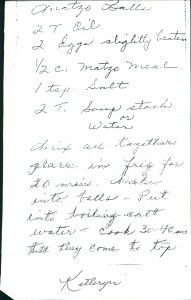 Matzo Balls
2 T Oil
2 Eggs slightly beaten
1/2 c. Matzo Meal
1 tsp. Salt
2 T. Soup stock
or
Water
Mix all together
place in frig for
20 mins. Make
into balls - Put
into boiling salt
water - cook 30-40 min
till they come to top
Kathryn